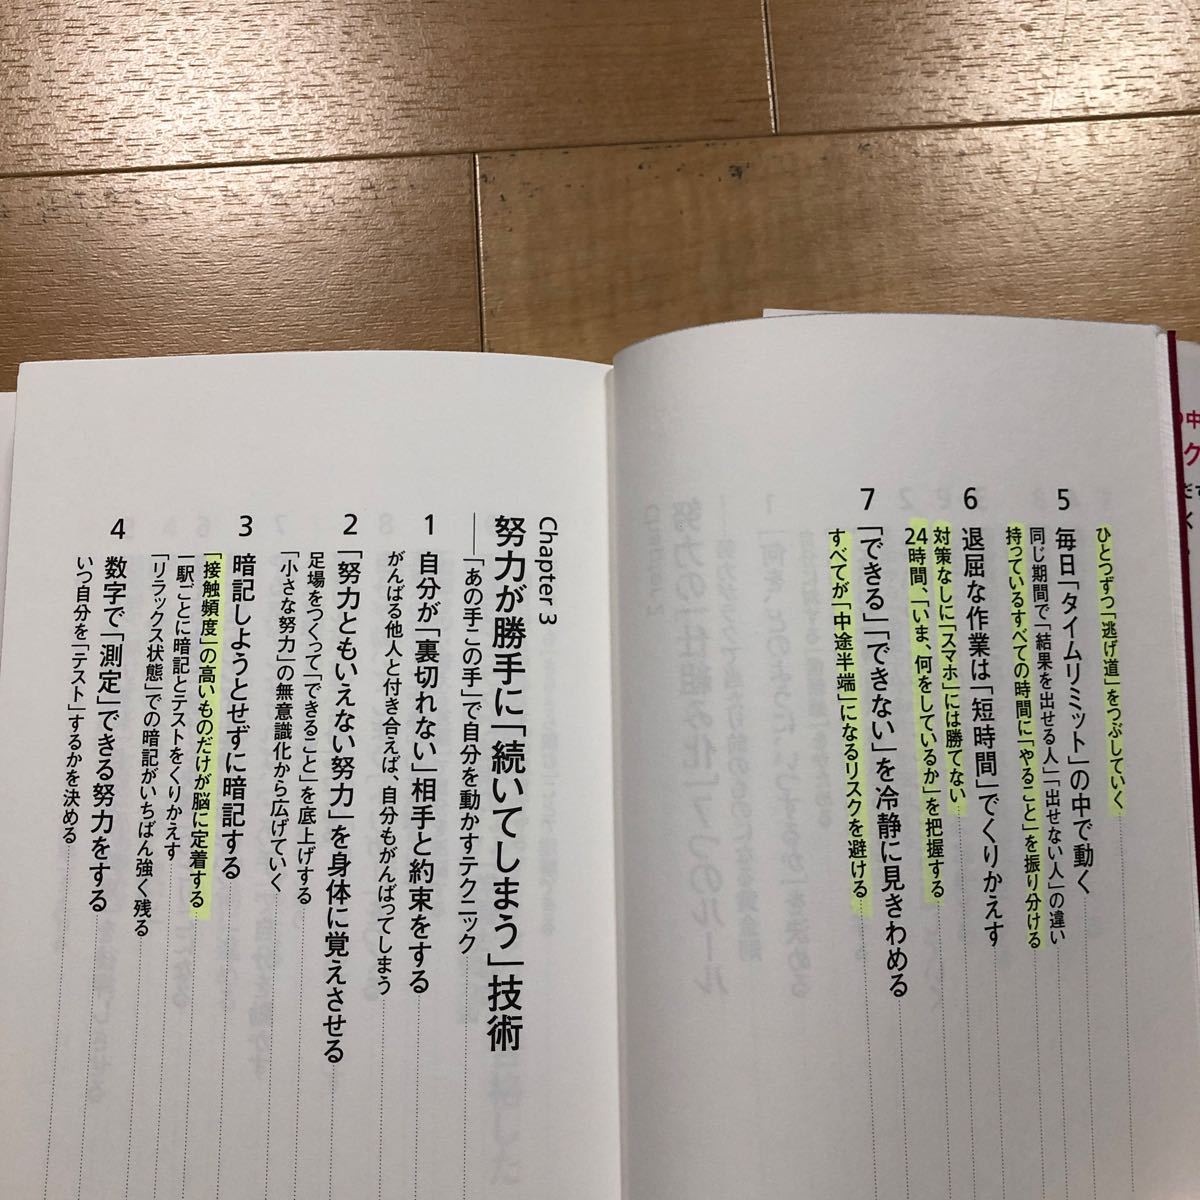 ひとつずつ「逃げ道」をつぶしていく
5 毎日「タイムリミット」の中で動く
同じ期間で「結果を出せる人」「出せない人」の違い
持っているすべての時間に「やること」を振り分ける
6 退屈な作業は「短時間」でくりかえす
対策なしに「スマホ」には勝てない
24時間、「いま、何をしているか」を把握する
7 「できる」「できない」を冷静に見きわめる
すべてが「中途半端」になるリスクを避ける
Chapter 3
努力が勝手に「続いてしまう」技術
──「あの手この手」で自分を動かすテクニック
1 自分が「裏切れない」相手と約束をする
がんばる他人と付き合えば、自分もがんばってしまう
2 「努力ともいえない努力」を身体に覚えさせる
足場をつくって「できること」を底上げする
「小さな努力」の無意識化から広げていく
3 暗記しようとせずに暗記する
「接触頻度」の高いものだけが脳に定着する
一駅ごとに暗記とテストをくりかえす
「リラックス状態」での暗記がいちばん強く残る
4 数字で「測定」できる努力をする
いつ自分を「テスト」するかを決める